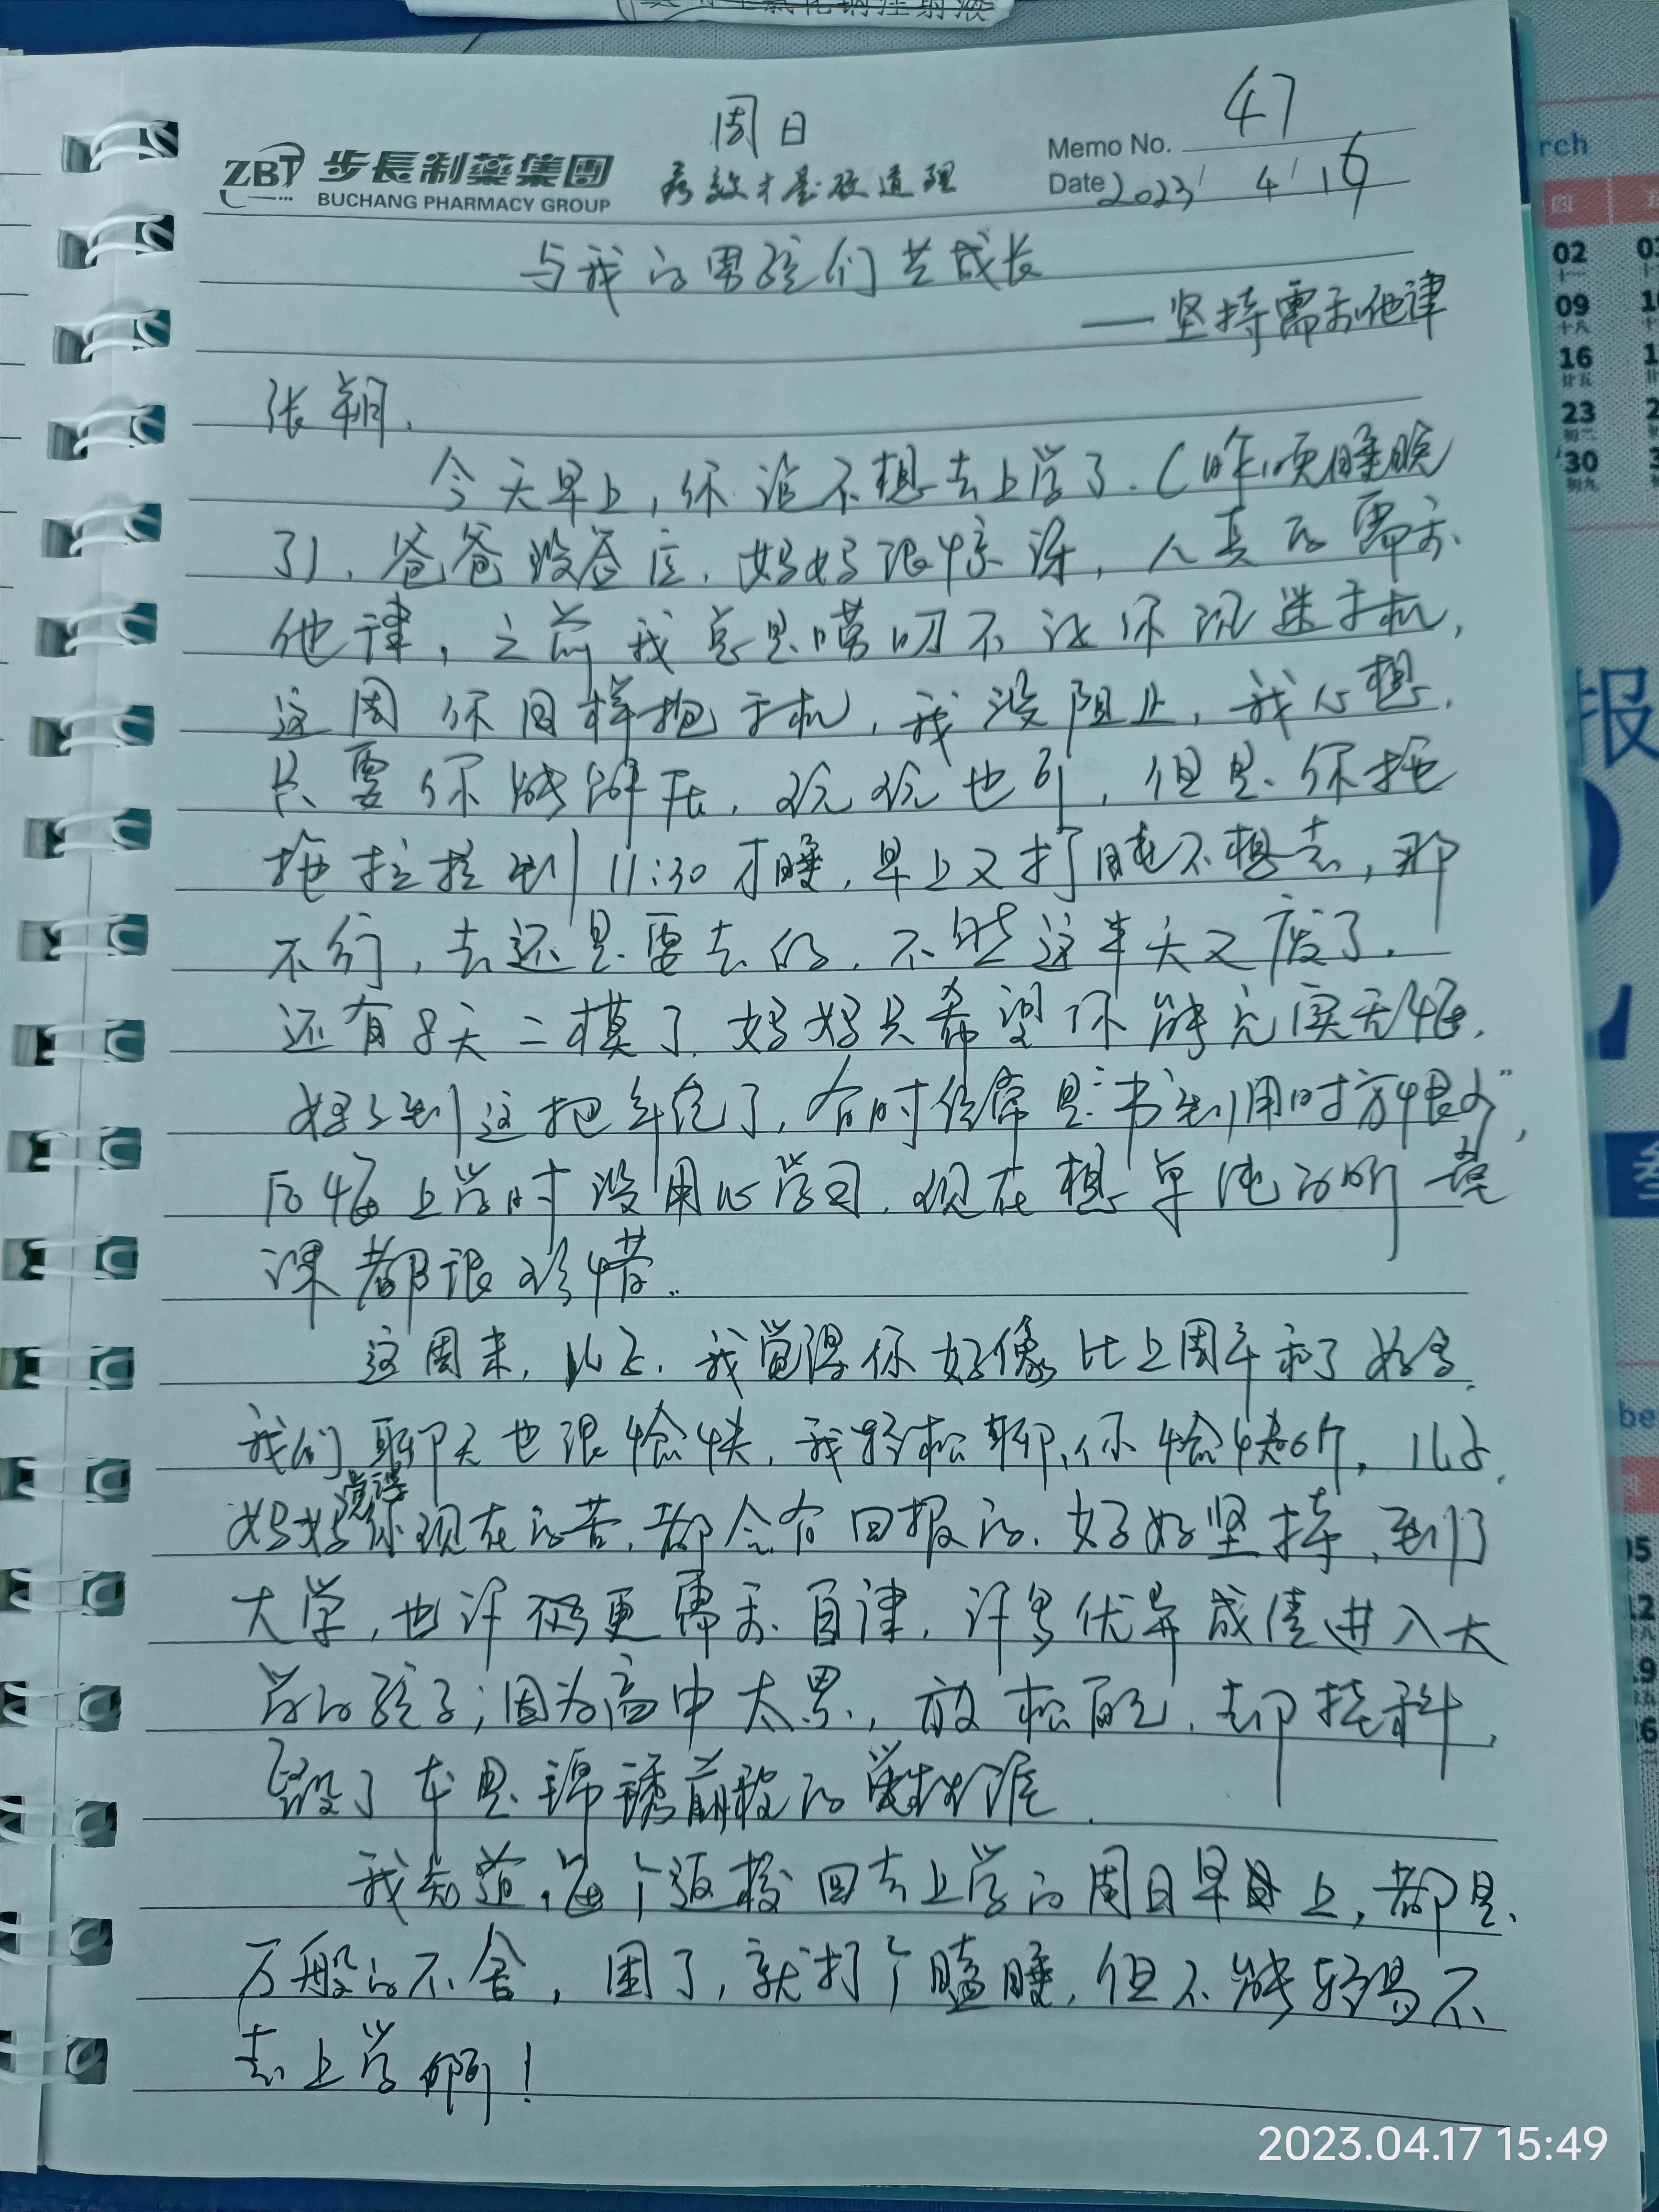 周日
47
Memo No.
ZBT 步長制藥集團
BUCHANG PHARMACY GROUP
疗效才是硬道理
Date 2023/ 4/ 16
与我的男孩们共成长
——坚持需要他律
张朔,
今天早上,你说不想去上学了.(昨晚睡晚
了),爸爸没答应,妈妈很惊讶,人真的需要
他律,之前我总是唠叨不让你沉迷手机,
这周你同样抱手机,我没阻止,我心想,
只要你能解压,玩玩也行,但是你拖
拖拉拉到11:30才睡,早上又打盹不想去,那
不行,去还是要去的,不然这半天又废了.
还有8天二模了,妈妈只希望你能充实无悔,
妈妈到这把年纪了,有时经常是“书到用时方恨少”,
后悔上学时没用心学习,现在想单纯的听一堂
课都很珍惜.
这周末,儿子,我觉得你好像比上周平和了好多,
我们聊天也很愉快,我轻松聊,你愉快听,儿子,
妈妈觉得你现在的苦,都会有回报的,好好坚持,到了
大学,也许更需要自律,许多优异成绩进入大
学的孩子;因为高中太累,放松后,却挂科,
毁了本是锦绣前程的
我知道,每个返校回去上学的周日早上,都是
万般的不舍,困了,就打个瞌睡,但不能轻易不
去上学啊!
2023.04.17 15:49
02
09
16
23
30
报